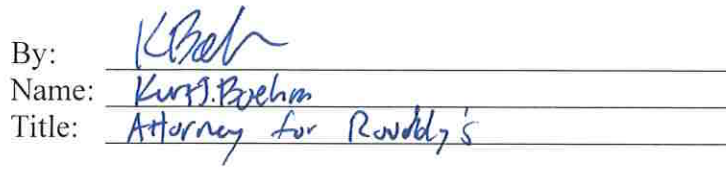 By: KBoehm
Name: Kurt J. Boehm
Title: Attorney for Roundy's